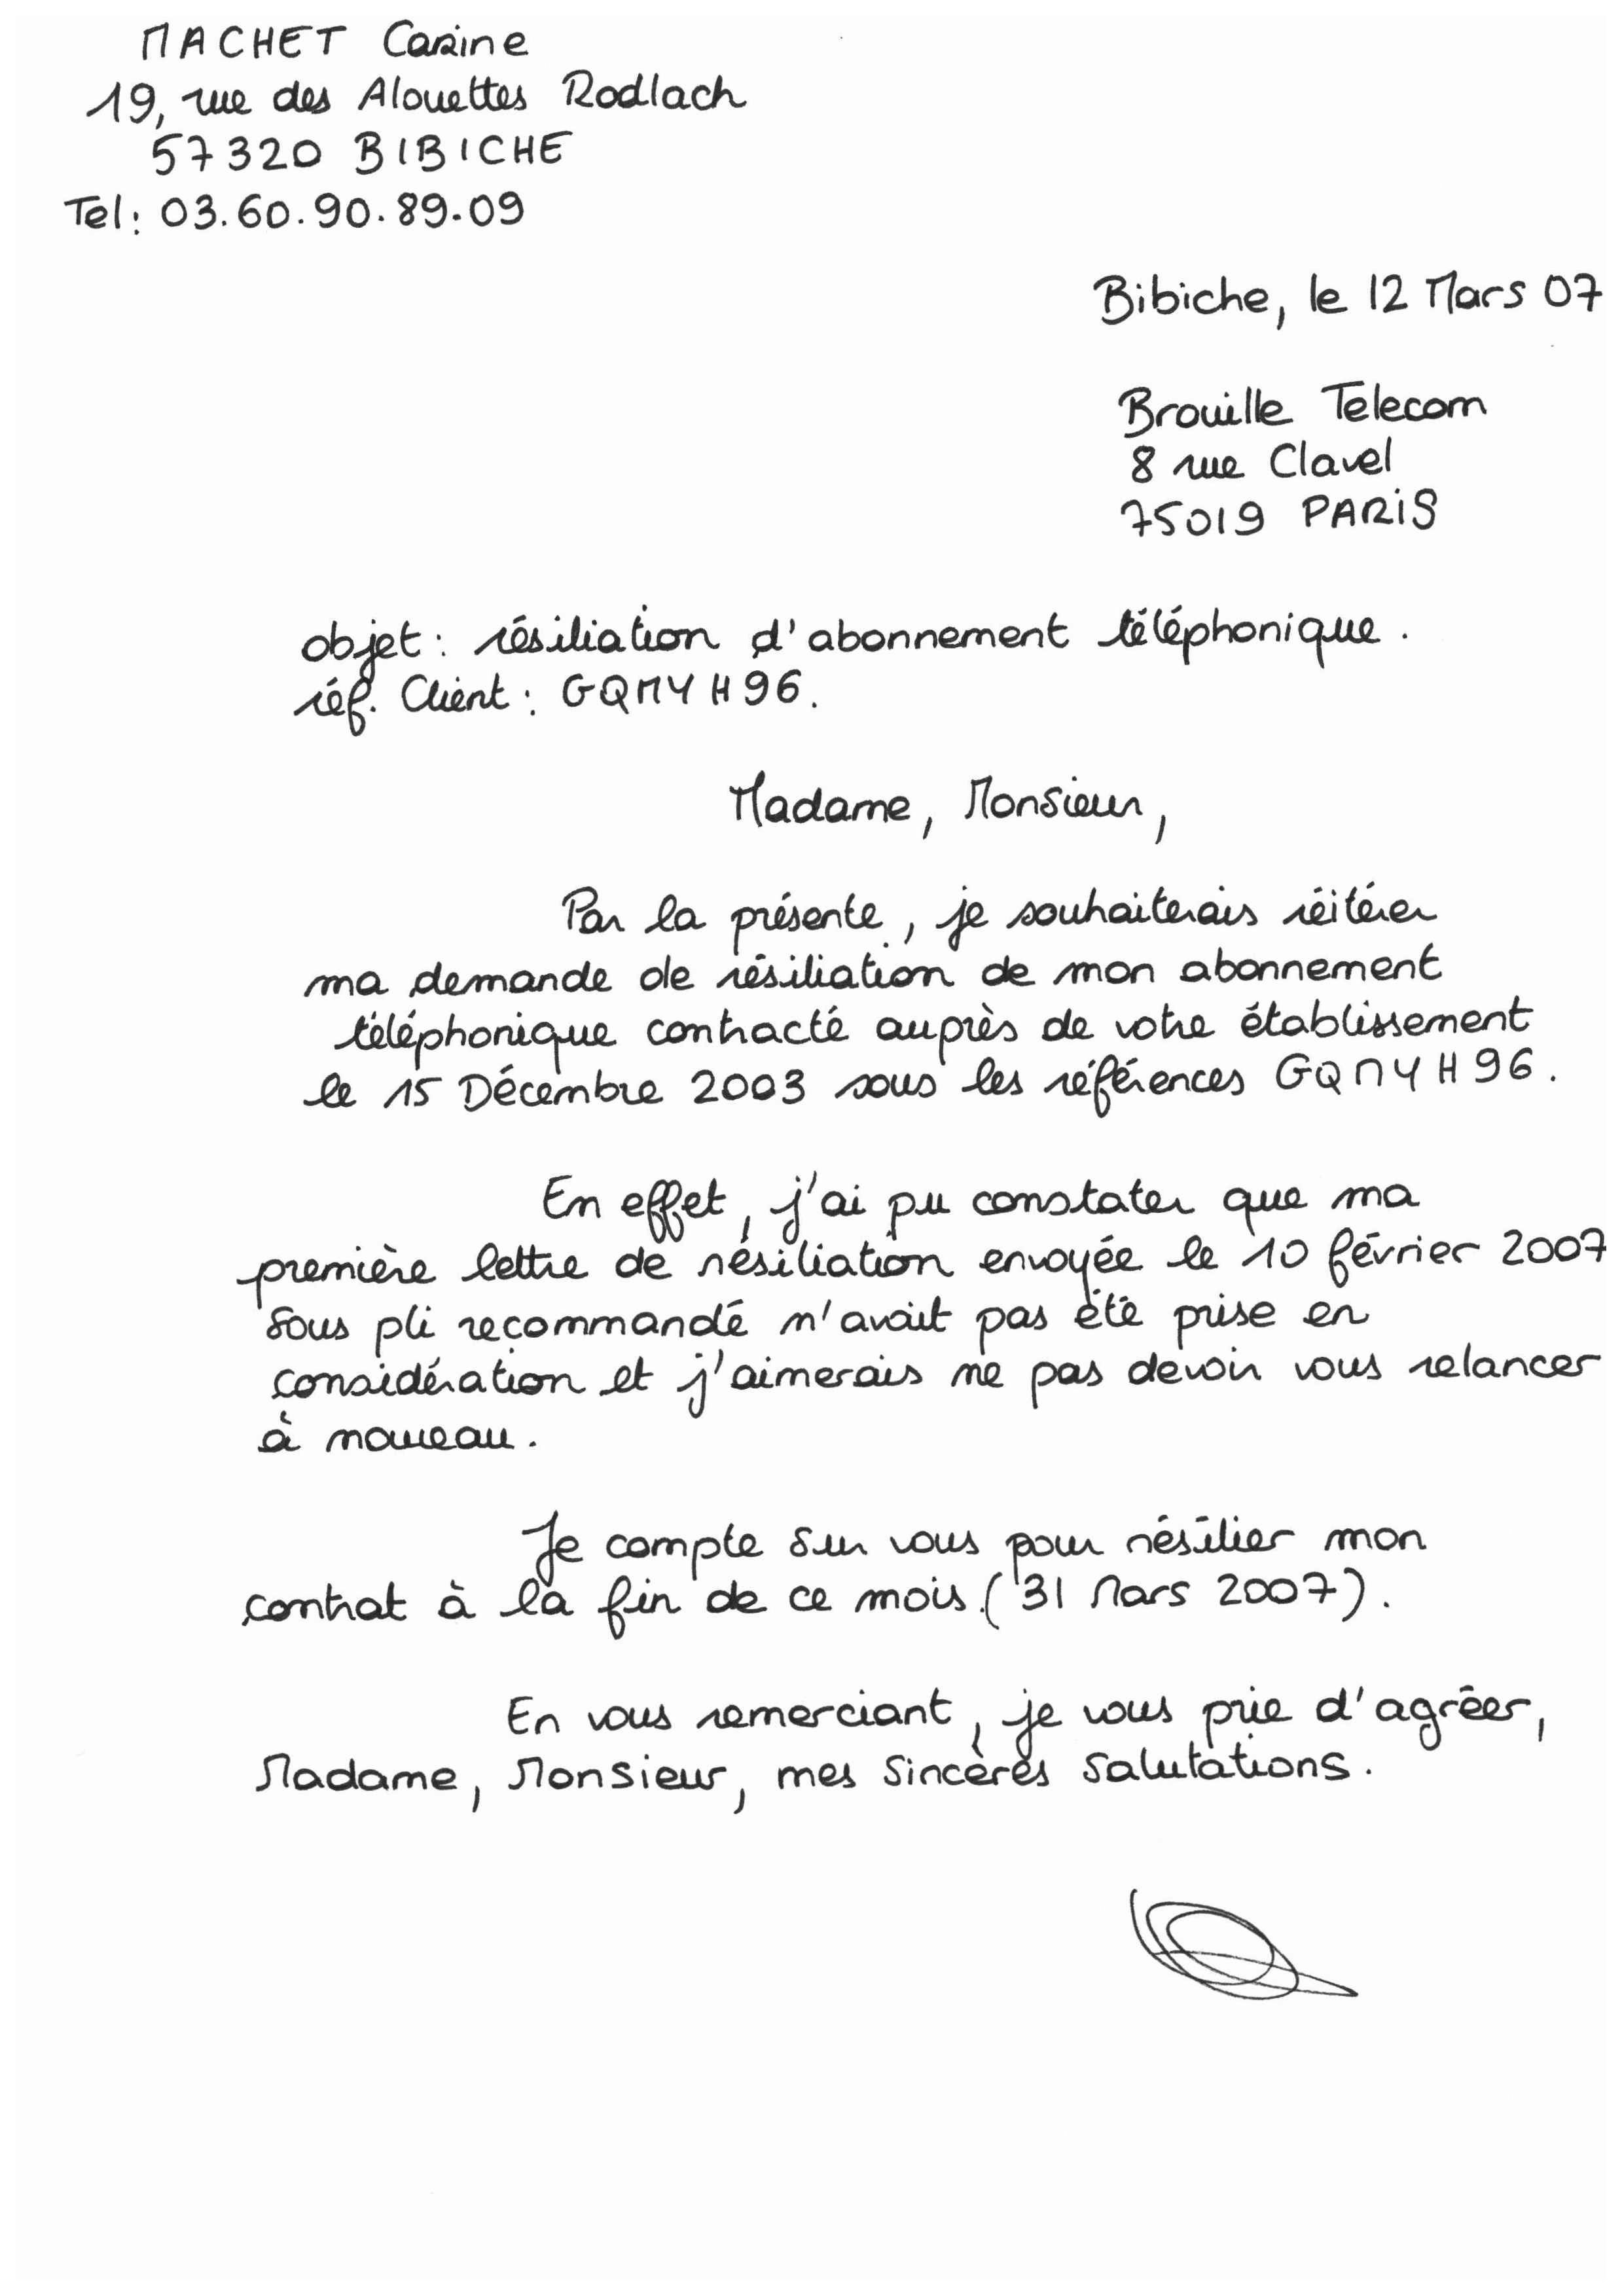 MACHET Carine
19, rue des Alouettes Rodlach
57320 BIBICHE
Tel: 03.60.90.89.09
Bibiche, le 12 Mars 07
Brouille Telecom
8 rue Clavel
75019 PARIS
objet : résiliation d'abonnement téléphonique.
réf. Client : GQMYH96.
Madame, Monsieur,
Par la présente, je souhaiterais réitérer
ma demande de résiliation de mon abonnement
téléphonique contracté auprès de votre établissement
le 15 Décembre 2003 sous les références GQMYH96.
En effet, j'ai pu constater que ma
première lettre de résiliation envoyée le 10 février 2007
sous pli recommandé n'avait pas été prise en
considération et j'aimerais ne pas devoir vous relancer
à nouveau.
Je compte sur vous pour résilier mon
contrat à la fin de ce mois (31 Mars 2007).
En vous remerciant, je vous prie d'agréer,
Madame, Monsieur, mes sincères salutations.